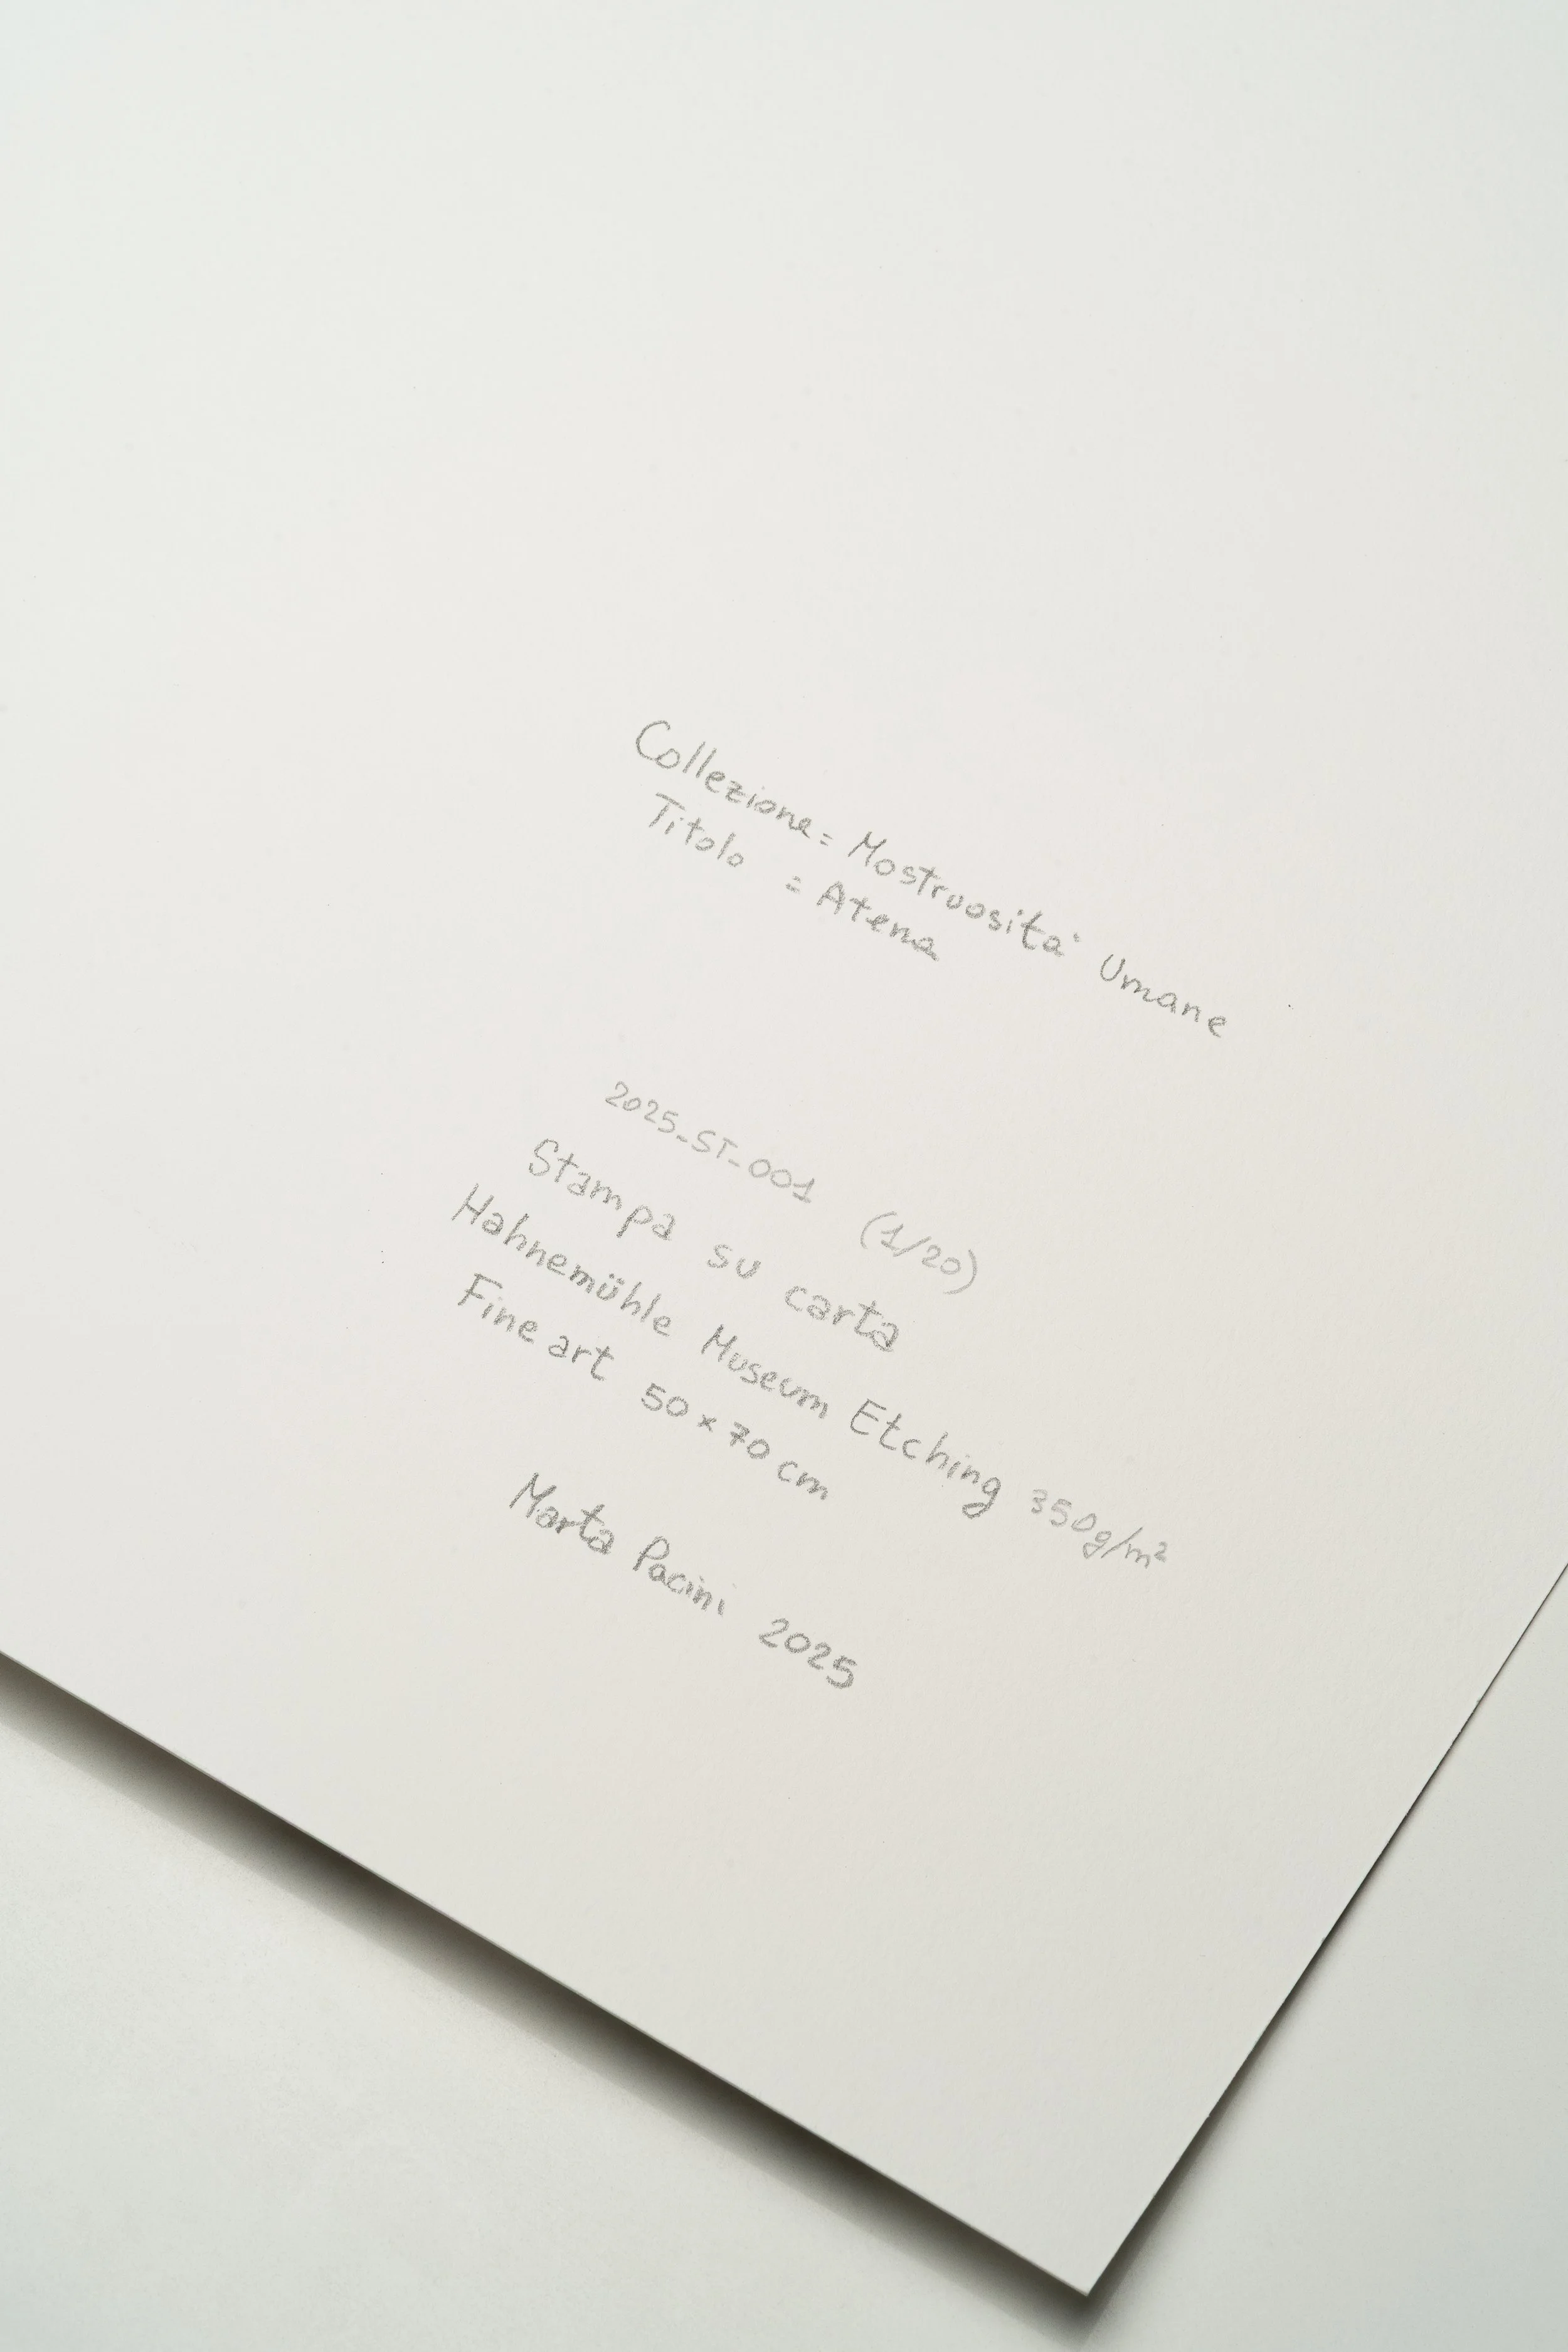 Collezione = Mostruosità Umane
Titolo = Atena
2025_ST_001 (1/20)
Stampa su carta
Hahnemühle Museum Etching 350g/m²
Fine art 50 x 70 cm
Marta Pacini 2025